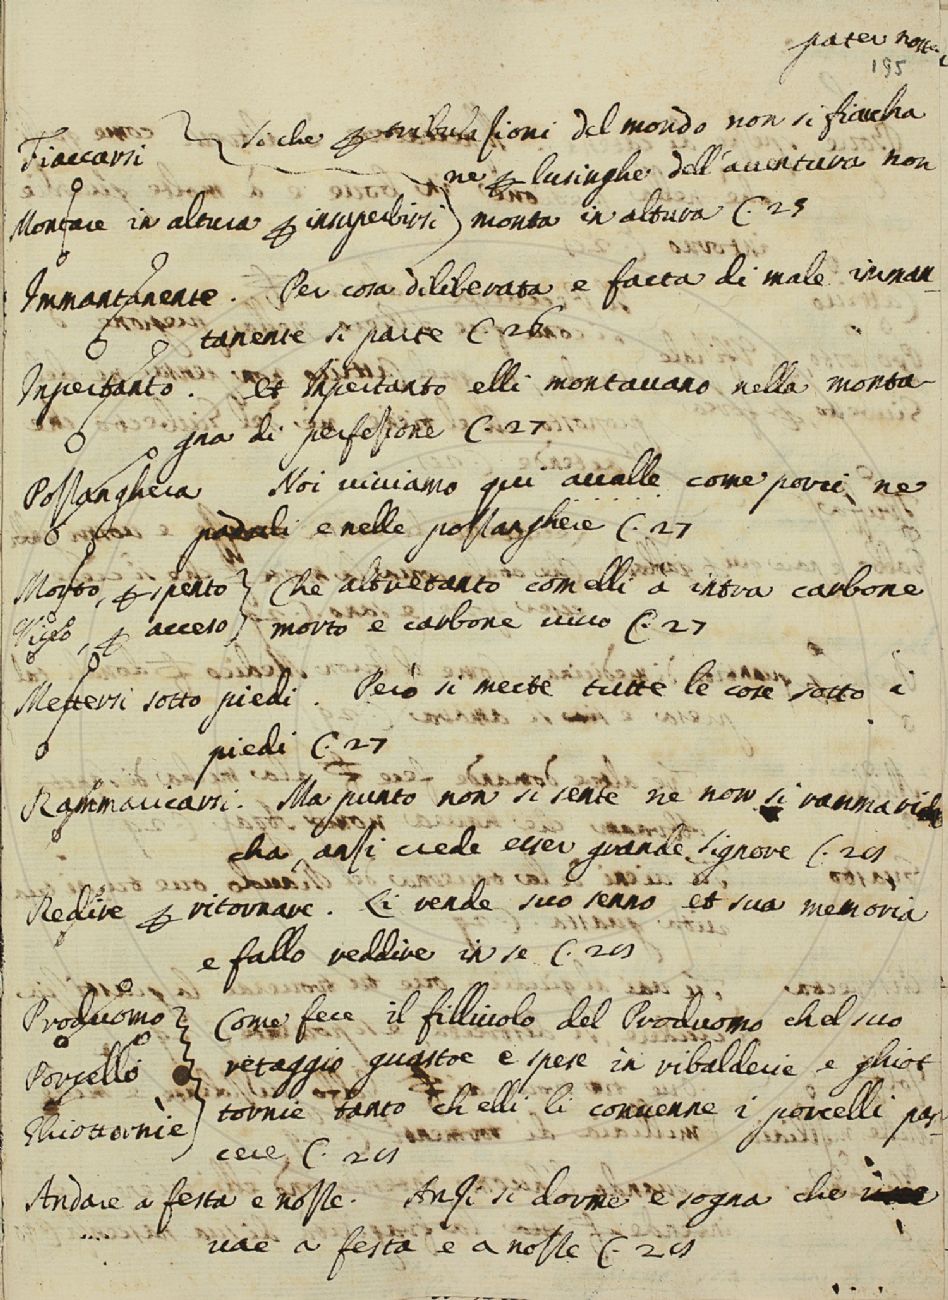 pater nost
195
Fiaccarsi } si che p tribulasioni del mondo non si fiaccha
ne p lusinghe dell'aventura non
Montare in altura p insuperbirsi } monta in altura C. 25
Immantanente. Per cosa diliberata e facta di male inman-
tanente si parte C. 26
Inpertanto. Et Inpertanto elli montavano nella monta-
gna di perfessione C. 27
Possanghera Noi viviamo qui avalle come porci ne
paduli e nelle possanghere C. 27
Morto, p spento } Che altretanto com elli à intra carbone
Vivo, p acceso } morto e carbone vivo C. 27
Mettersi sotto piedi. Però si mecte tutte le cose socto i
piedi C. 27
Rammaricarsi. Ma punto non si sente ne non si rammari
cha ansi crede esser grande signore C. 29
Redire p ritornare. Li rende suo senno et sua memoria
e fallo reddire in se C. 29
Produomo } Come fece il filliuolo del Produomo chel suo
Porcello } retaggio guastoe e spese in ribalderie e ghiot
Ghiottornie } tornie tanto ch elli li convenne i porcelli pa-
scere C. 29
Andare a festa e nosse. Ansi si dorme e sogna che
vae a festa e a nosse C. 29